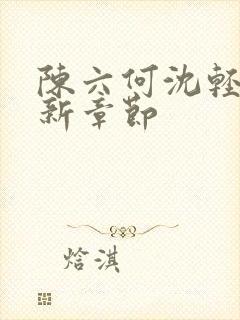 陳六何沈輕
新章節
焓淇